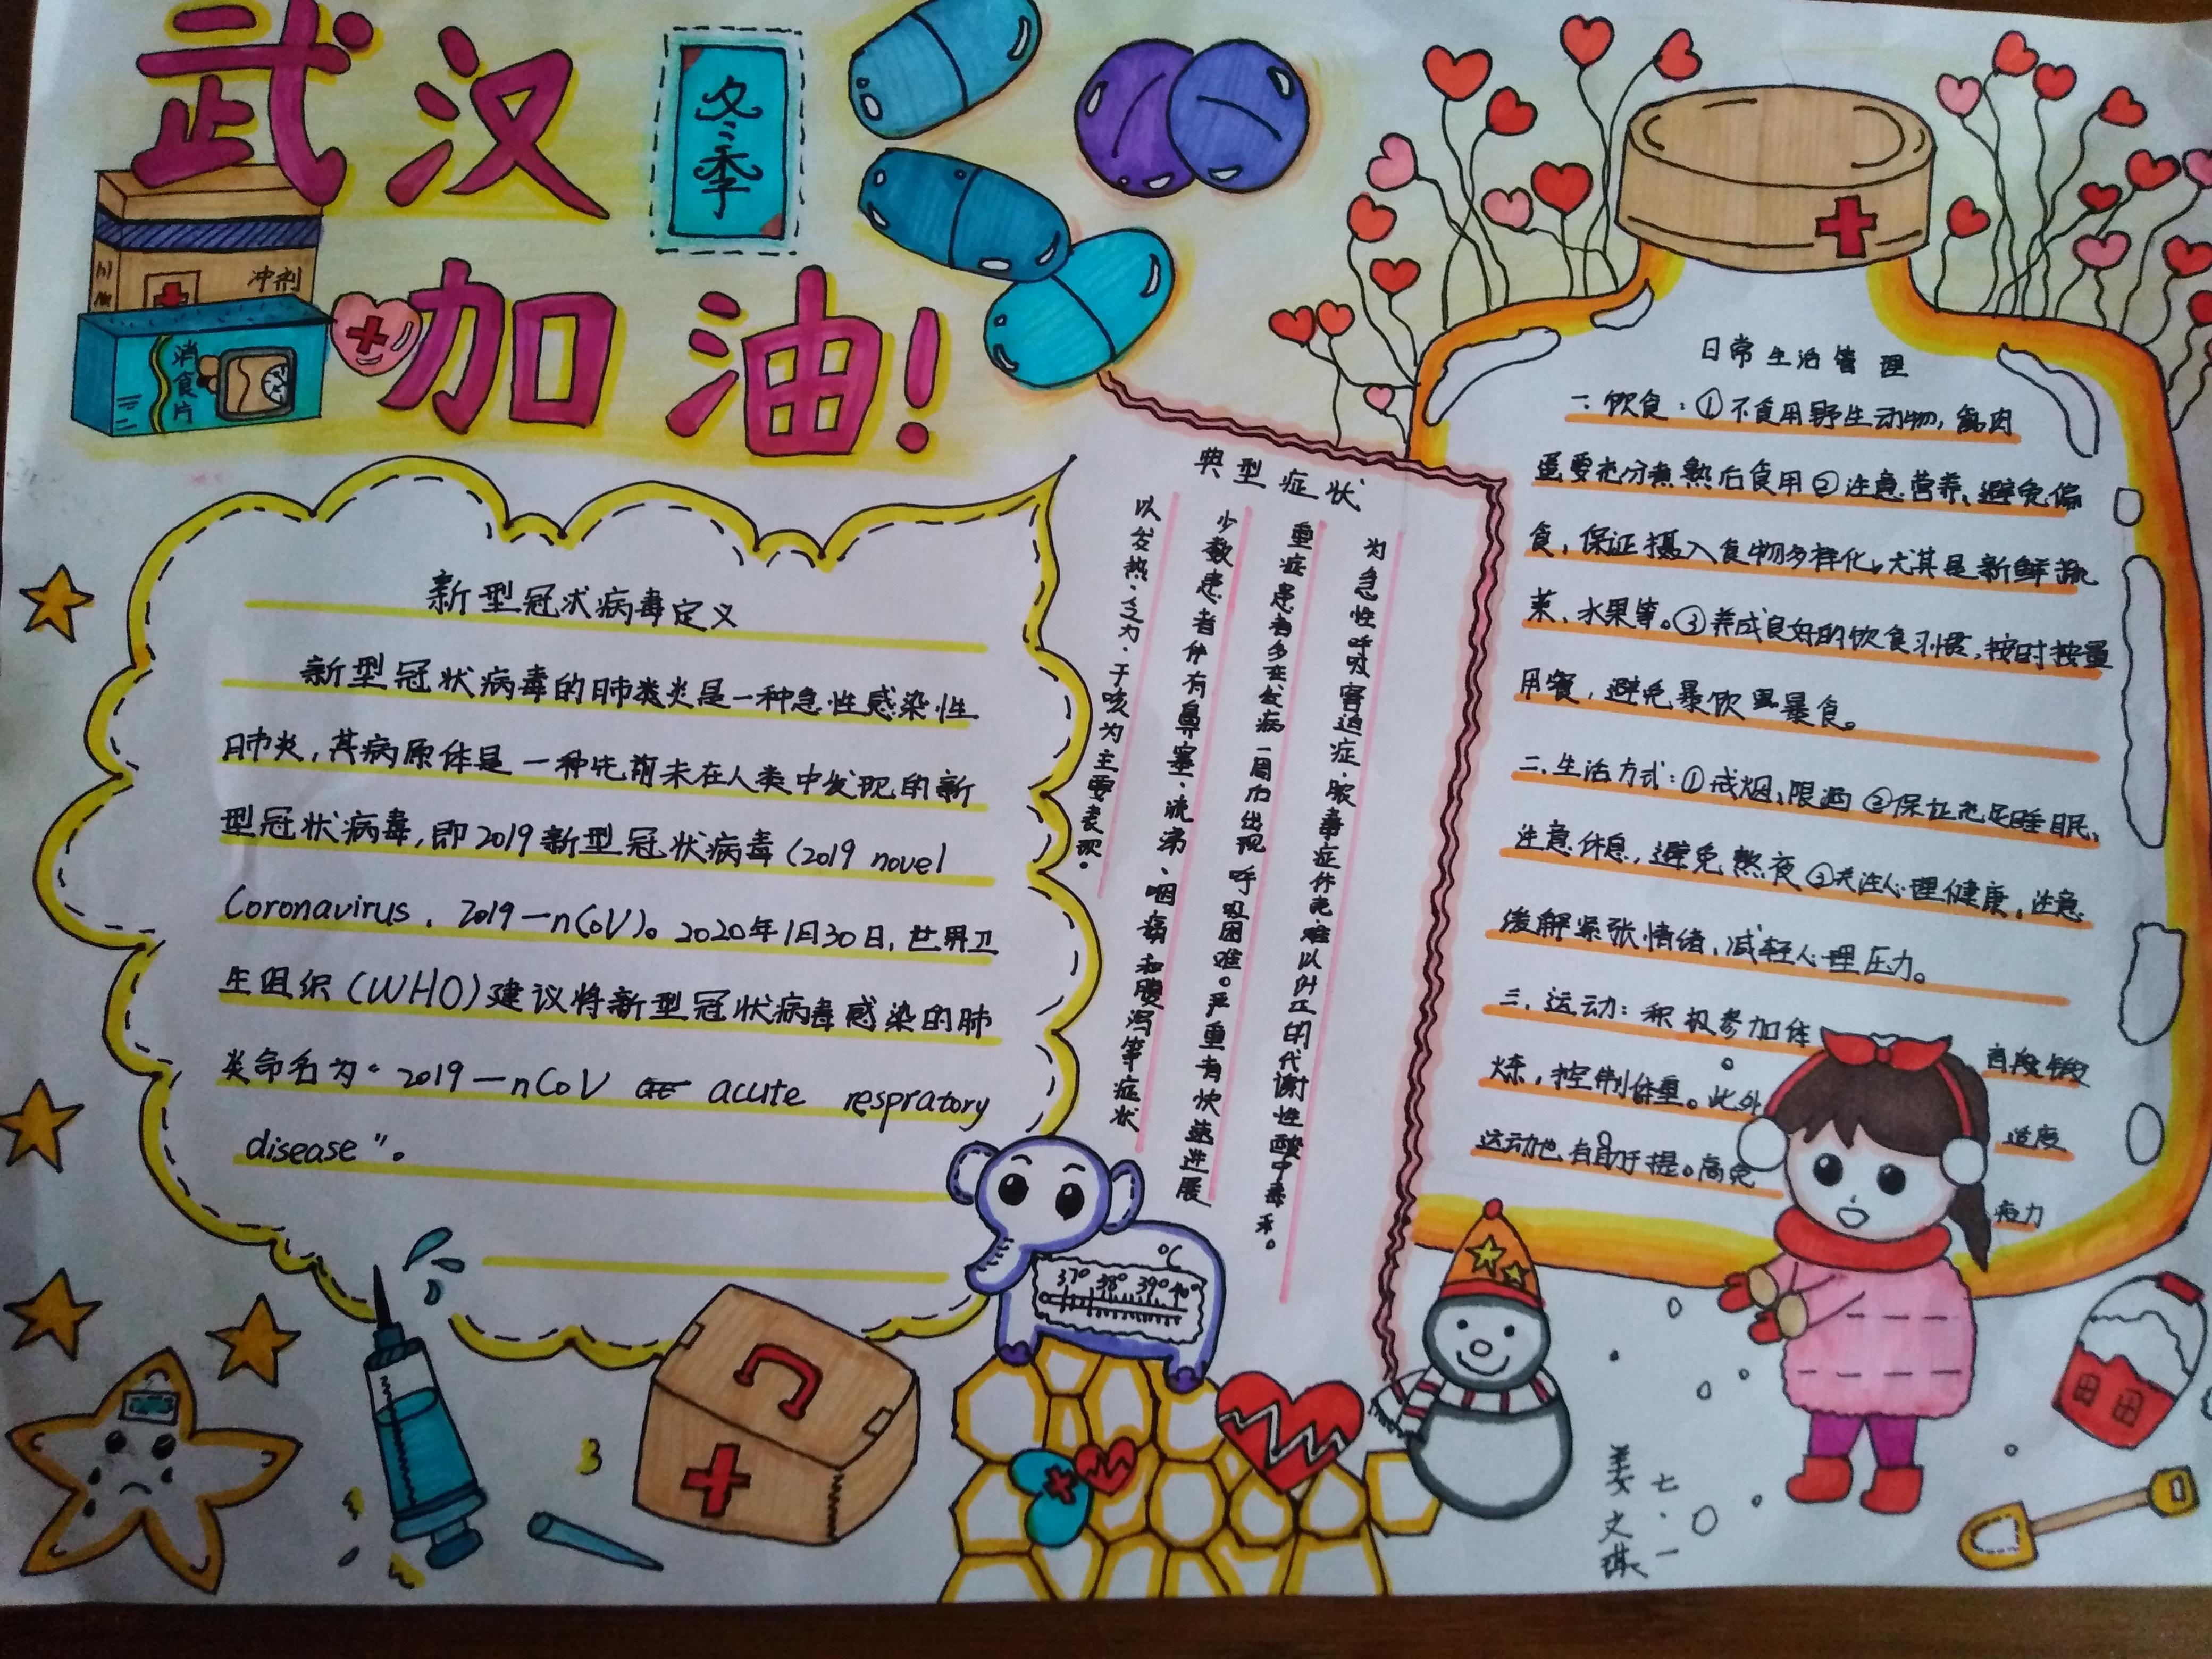 武汉
加油!
冬季
冲剂
消食片
新型冠状病毒定义
新型冠状病毒的肺类炎是一种急性感染性
肺炎,其病原体是一种先前未在人类中发现的新
型冠状病毒,即2019新型冠状病毒(2019 novel
Coronavirus,2019—nCoV)。2020年1月30日,世界卫
生组织(WHO)建议将新型冠状病毒感染的肺
炎命名为“2019—nCoV acute respratory
disease”。
典型症状
以发热、乏力、干咳为主要表现。
少数患者伴有鼻塞、流涕、咽痛和腹泻等症状
重症患者多在发病一周后出现呼吸困难。严重者快速进展
为急性呼吸窘迫症、脓毒症休克、难以纠正的代谢性酸中毒系。
日常生活管理
一.饮食:①不食用野生动物,禽肉
蛋要充分煮熟后食用②注意营养、避免偏
食,保证摄入食物多样化。尤其是新鲜蔬
菜、水果等。③养成良好的饮食习惯,按时按量
用餐,避免暴饮暴食。
二.生活方式:①戒烟、限酒②保证充足睡眠、
注意休息,避免熬夜③关注心理健康,注意
缓解紧张情绪,减轻心理压力。
三.运动:积极参加体育段锻
炼,控制体重。此外适度
运动也有助于提。高免疫力
37° 38° 39° 40° °C
七.一
姜文琪